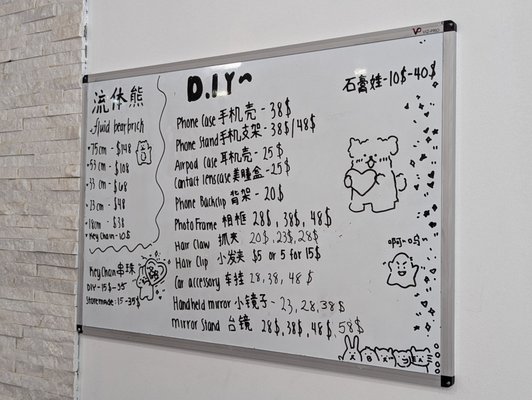 VIZ-PRO
流体熊
fluid bearbrick
• 75cm - $148
• 53cm - $108
• 33cm - $68
• 23cm - $48
• 18cm - $38
• Key Chain - 10$
Key Chain 串珠
DIY - 15$ - 35
Store made: 15 - 35$
D.I.Y~
Phone Case 手机壳 - 38$
Phone Stand 手机支架 - 38$/48$
Airpod Case 耳机壳 - 25$
Contact lens case 美瞳盒 - 25$
Phone Backclip 背架 - 20$
Photo Frame 相框 28$, 38$, 48$
Hair Claw 抓夹 20$, 23$, 28$
Hair Clip 小发夹 $5 or 5 for 15$
Car accessory 车挂 28, 38, 48$
Handheld mirror 小镜子 - 23, 28, 38$
Mirror Stand 台镜 28$, 38$, 48$, 58$
石膏娃 - 10$ - 40$